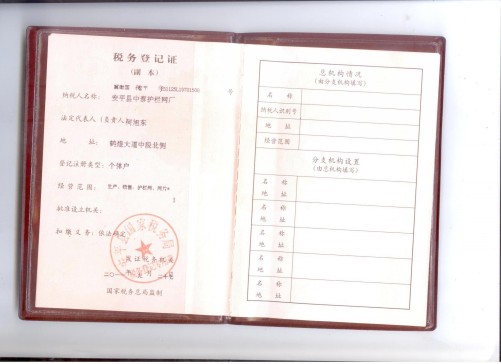 税务登记证
(副 本)
号
纳税人名称： 安平县中寨护栏网厂
法定代表人(负责人)何旭东
地 址： 鹤煌大道中段北侧
登记注册类型：个体户
经营范围： 生产、销售：护栏网、网片*
批准设立机关：
扣缴义务：依法确定
发证税务机关
安平县国家税务局
国家税务总局监制
总机构情况
(由分支机构填写)
名 称
纳税人识别号
地 址
经营范围
分支机构设置
(由总机构填写)
名 称
地 址
名 称
地 址
名 称
地 址
名 称
地 址
名 称
地 址